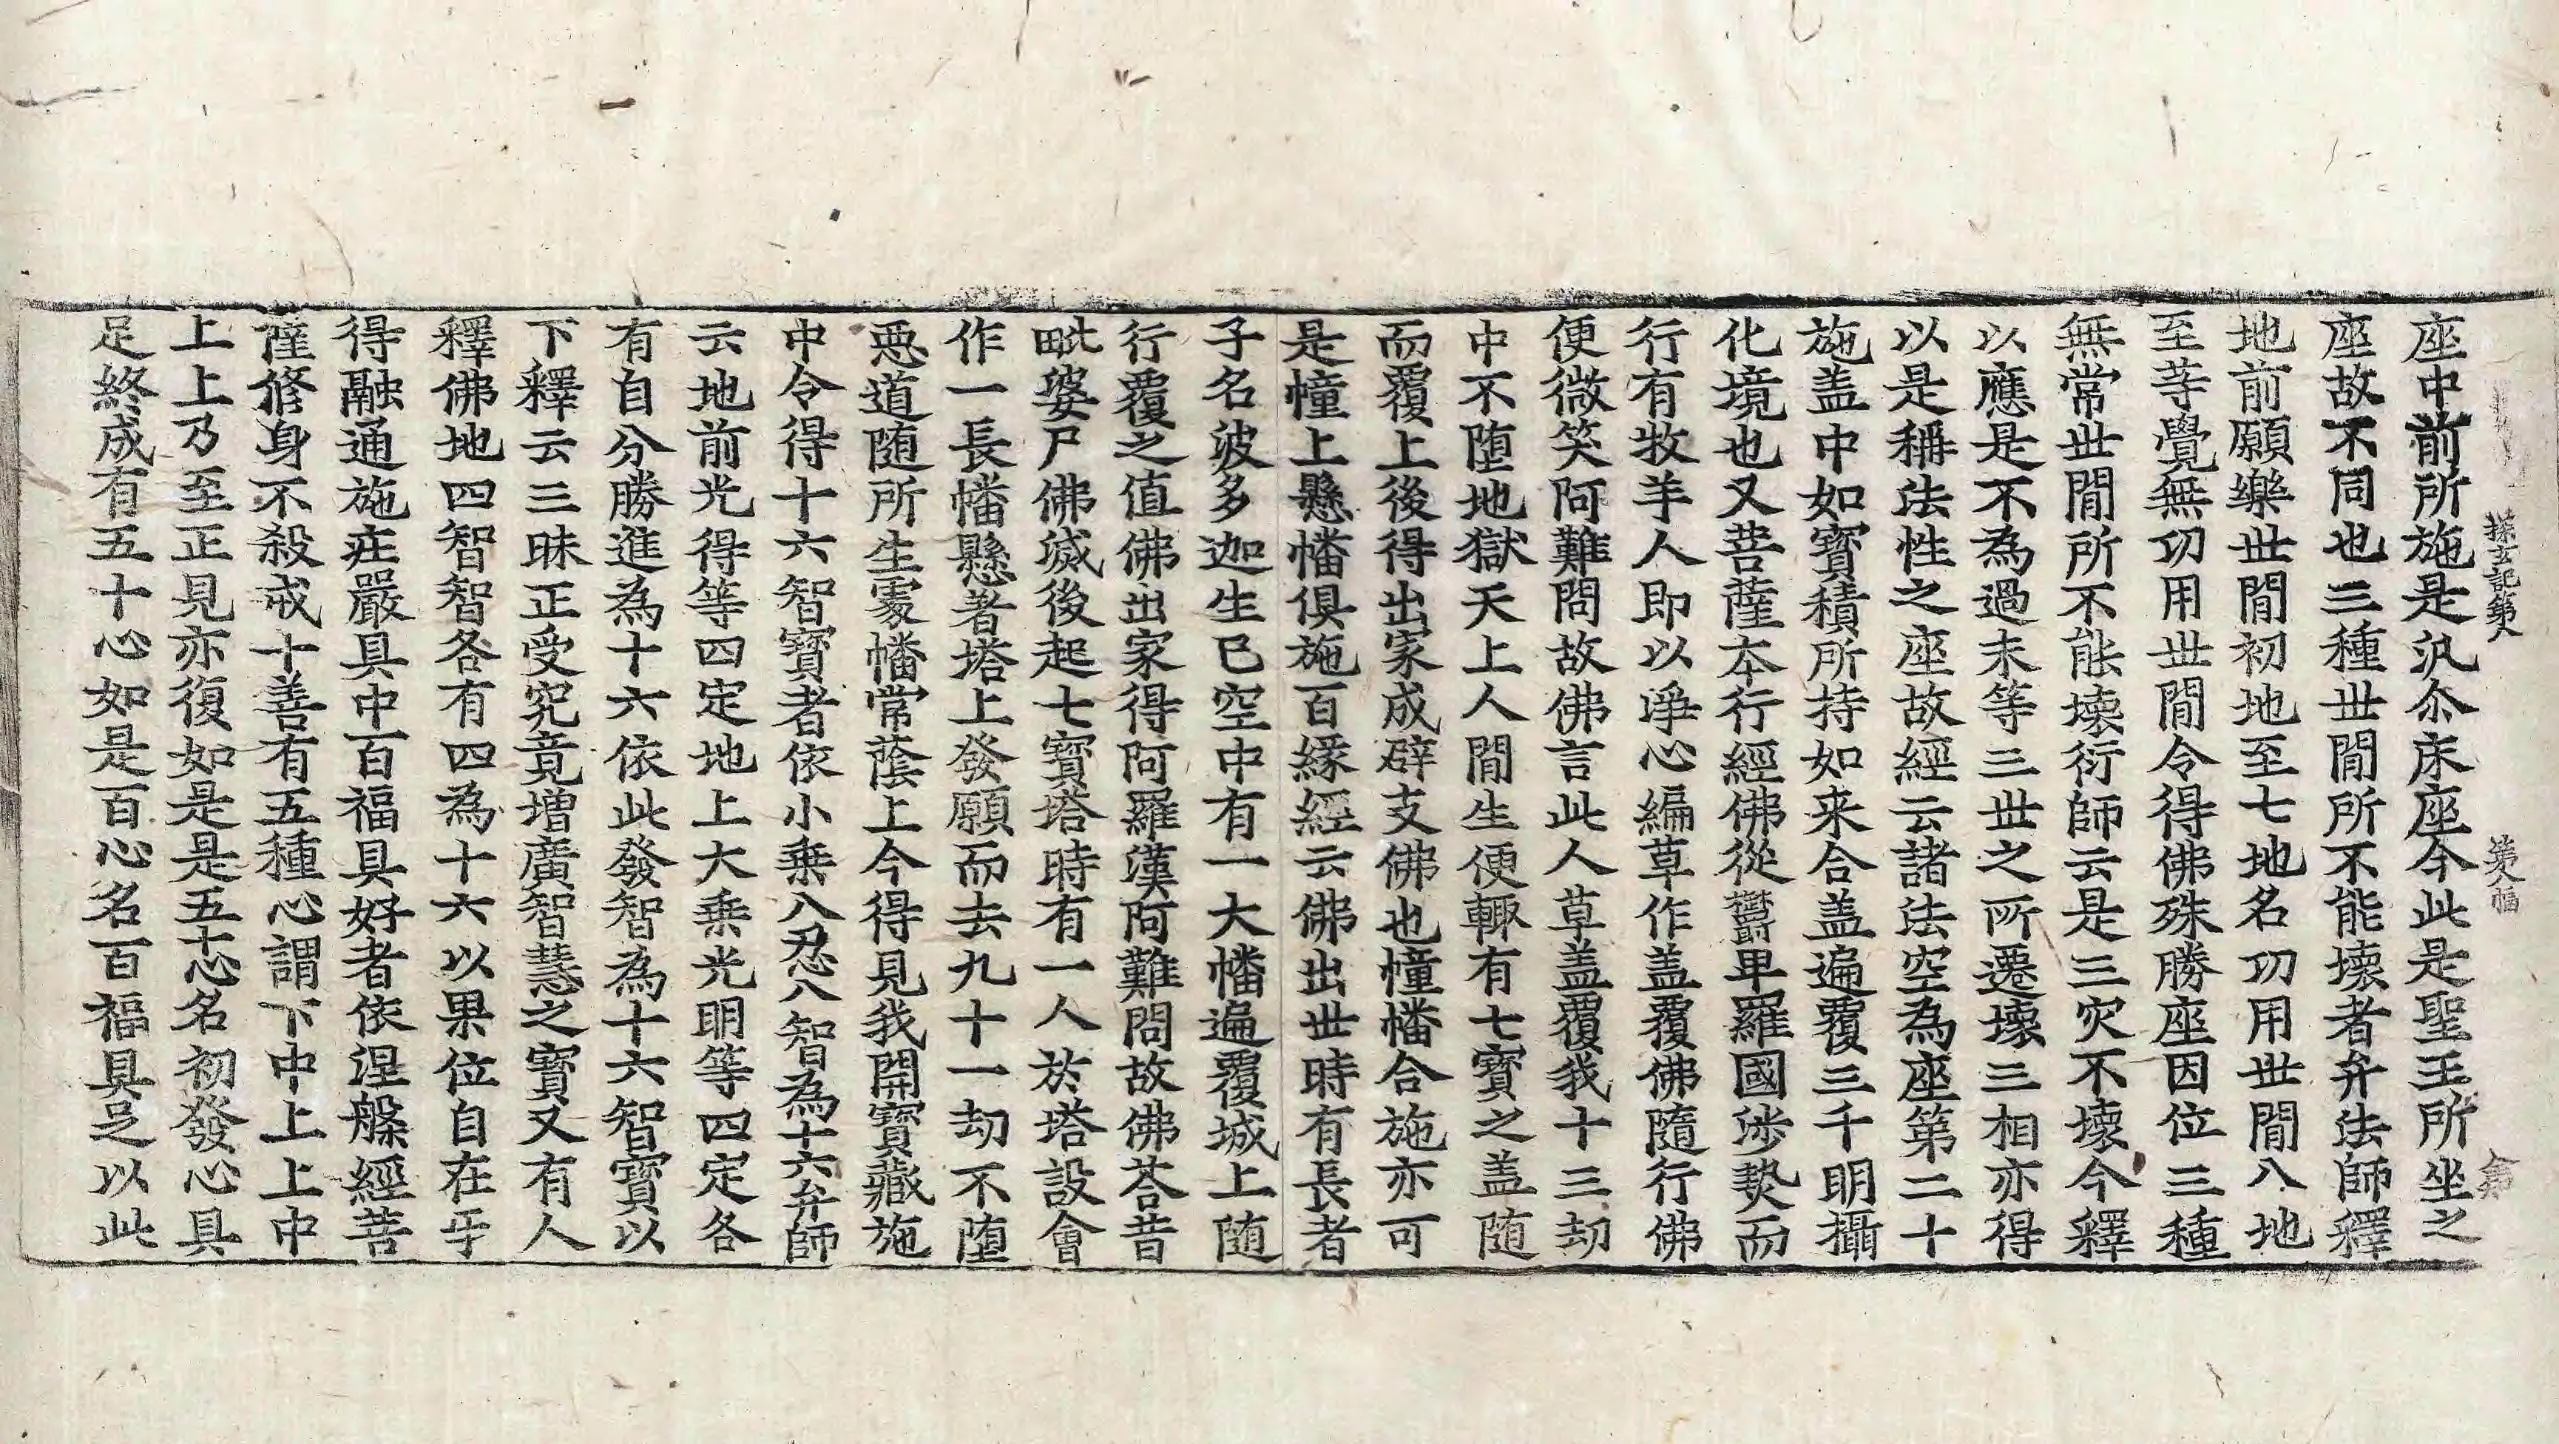 探玄記第八 第八幅 第
座中前所施是汎尒床座今此是聖王所坐之
座故不同也三種世閒所不能壞者弁法師釋
地前願樂世閒初地至七地名功用世閒八地
至等覺無功用世閒令得佛殊勝座因位三種
無常世閒所不能壞衍師云是三灾不壞今釋
以應是不為過未等三世之所遷壞三相亦得
以是稱法性之座故經云諸法空為座第二十
施盖中如寳積所持如来合盖遍覆三千明攝
化境也又菩薩本行經佛從欝卑羅國涉㔟而
行有牧羊人即以淨心編草作盖覆佛隨行佛
便微笑阿難問故佛言此人草盖覆我十三劫
中不墮地獄天上人閒生便輙有七寳之盖随
而覆上後得出家成辟支佛也幢幡合施亦可
是幢上懸幡俱施百緣經云佛出世時有長者
子名波多迦生已空中有一大幡遍覆城上随
行覆之值佛出家得阿羅漢阿難問故佛荅昔
毗婆尸佛滅後起七寳塔時有一人於塔設會
作一長幡懸著塔上發願而去九十一劫不墮
惡道随所生處幡常蔭上今得見我開寳藏施
中令得十六智寳者依小乗八忍八智為十六弁師
云地前光得等四定地上大乗光明等四定各
有自分勝進為十六依此發智為十六智寳以
下釋云三昧正受究竟增廣智慧之寳又有人
釋佛地四智智各有四為十六以果位自在乎
得融通施莊嚴具中百福具好者依涅槃經菩
薩修身不殺戒十善有五種心謂下中上上中
上上乃至正見亦復如是是五十心名初發心具
足終成有五十心如是百心名百福具足以此